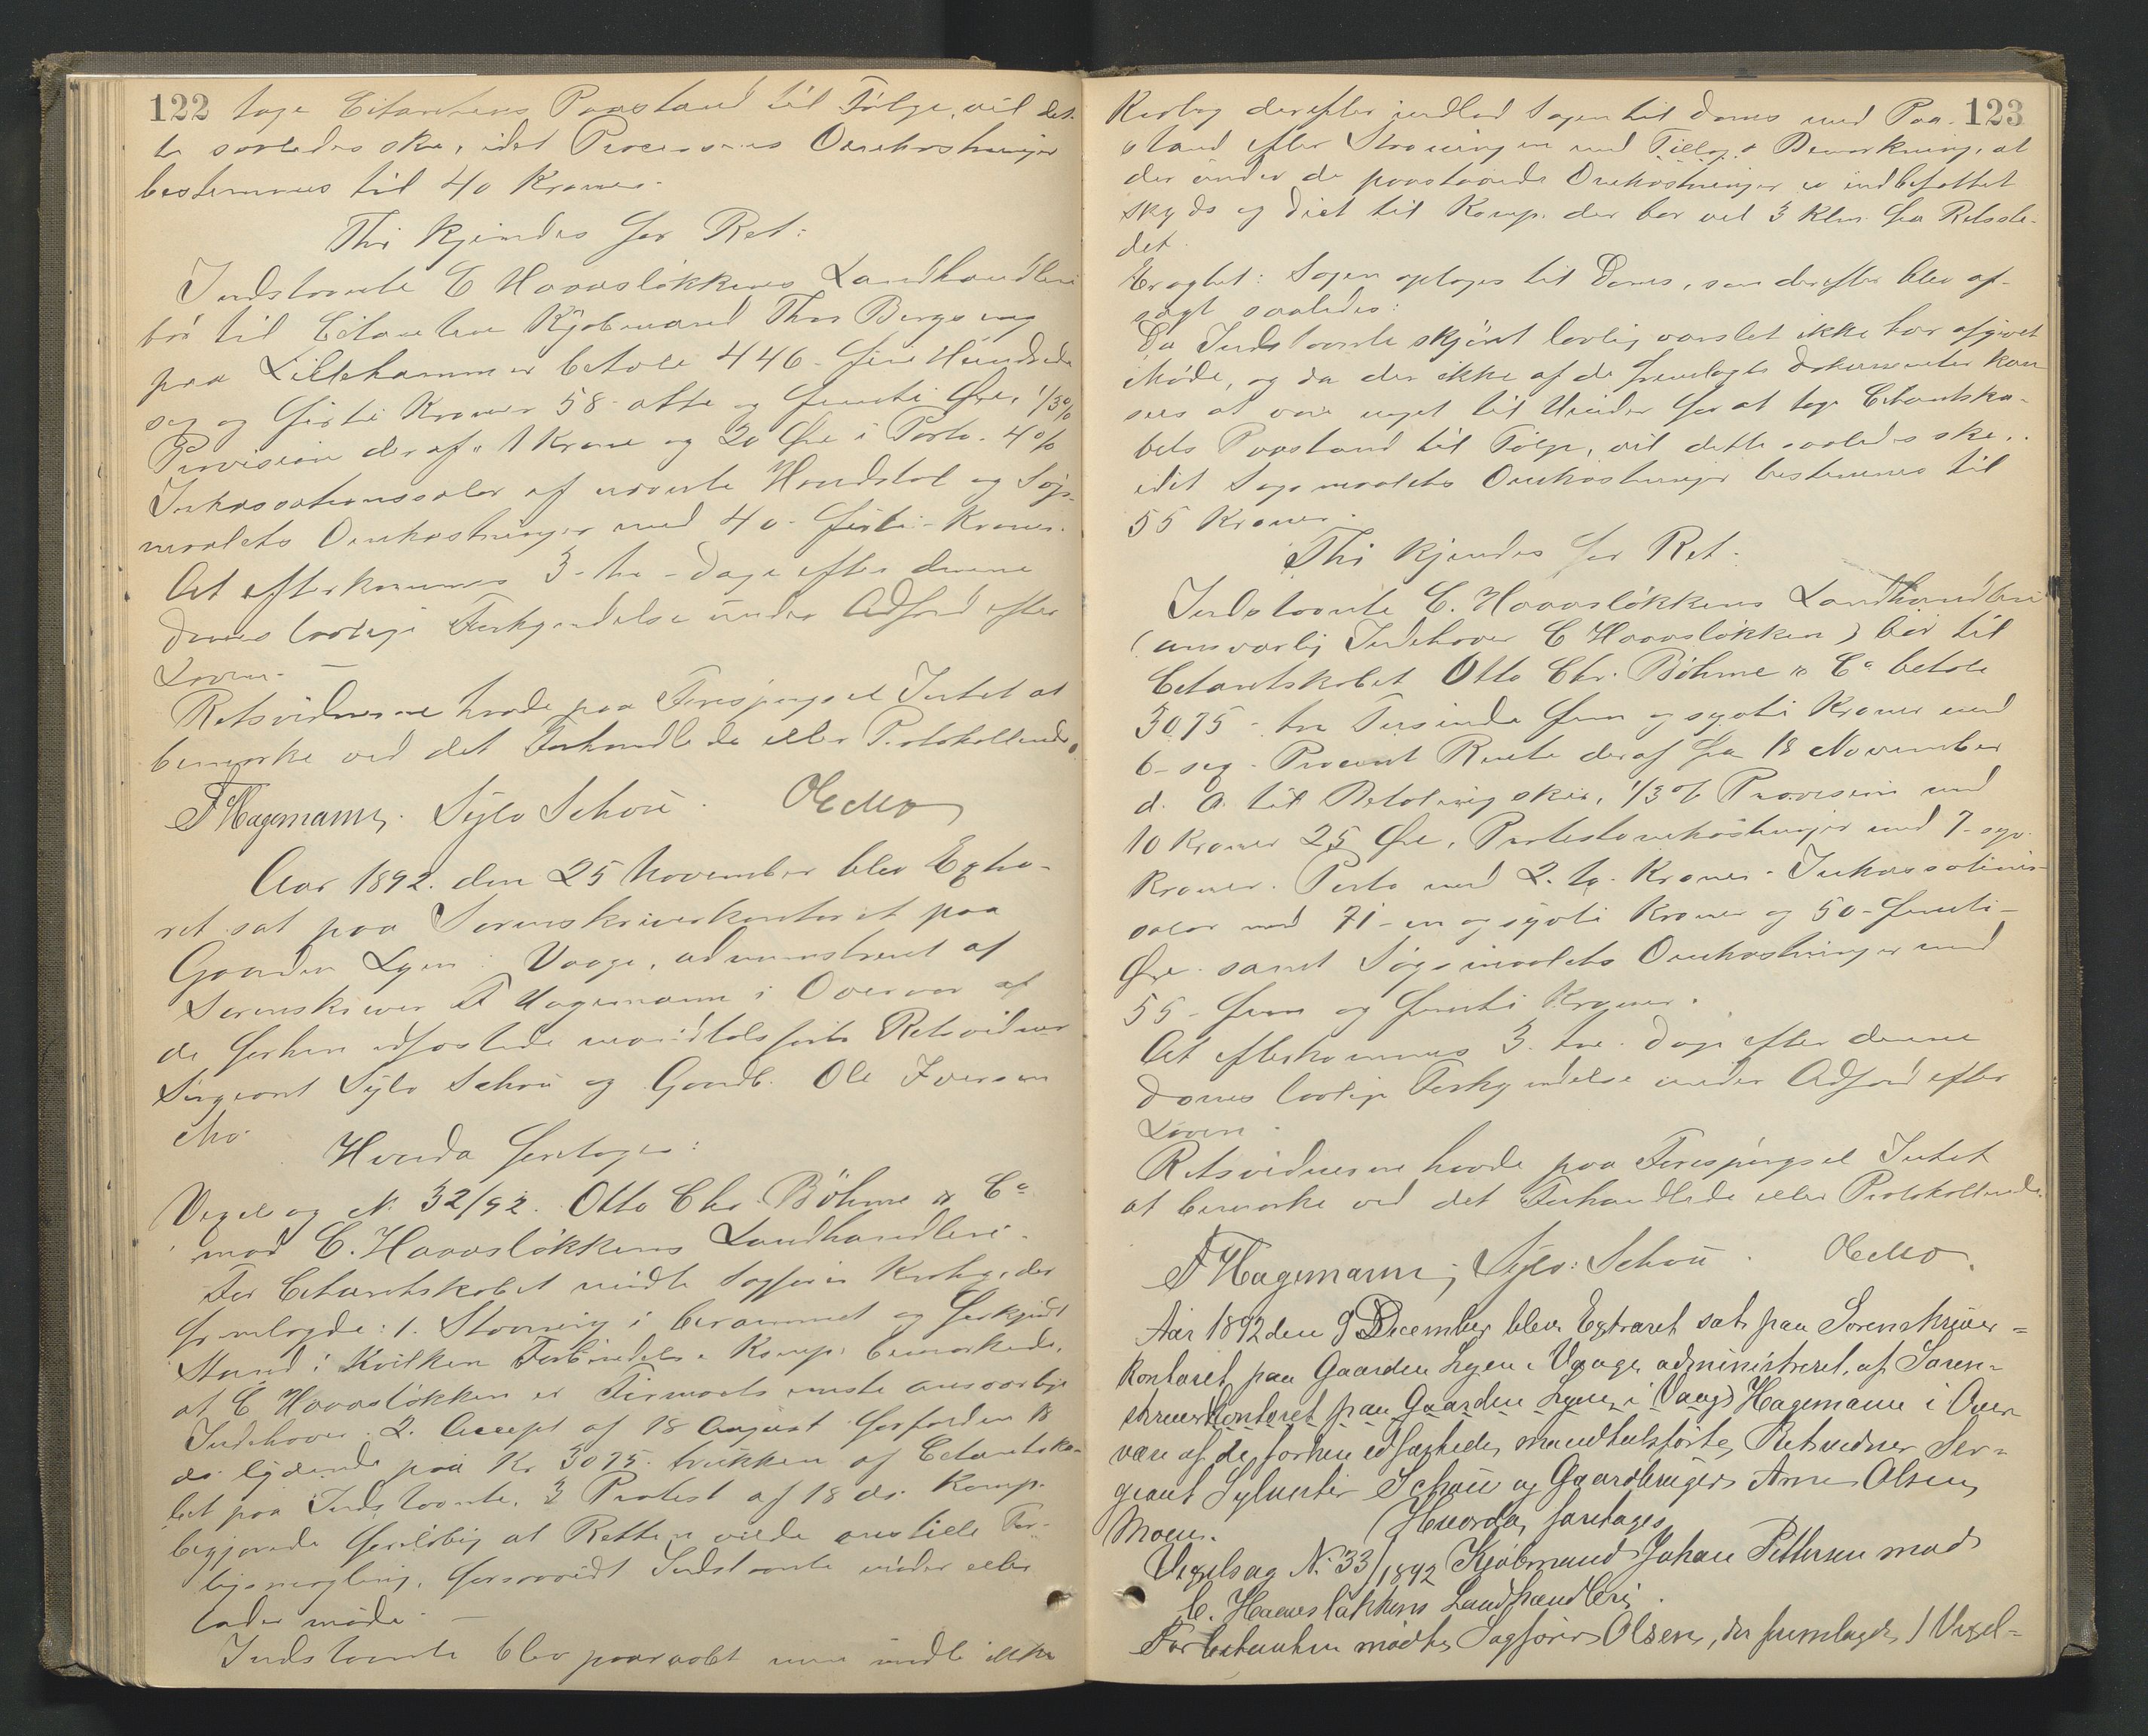 122
tage Citantens Paastand til Følge, vil det-
te saaledes ske, idet Processens Omkostninger
bestemmes til 40 Kroner.
Thi kjendes for Ret:
Indstævnte C Haavsløkkens Landhandleri
bør til Citanten Kjøbmand Thor Bergseng
paa Lillehammer betale 446 - fire Hundrede
sex og firti Kroner 58 - otte og femti Øre, 1/3 %
Provision deraf, 1 Krone og 20 Øre i Porto. 4 %
Inkassationssalær af nævnte Hovedstol og Søgs-
maalets Omkostninger med 40 - firti - Kroner.
At efterkommes 3 - tre - Dage efter denne
Doms lovlige Forkyndelse under Adfærd efter
Loven. —
Retsvidnerne havde paa Forespørgsel Intet at
bemærke ved det Forhandlede eller Protokollerede.
F Hagemann. Sylv Schou. OIMo
Aar 1892. den 25 November blev Extra-
ret sat paa Sorenskriverkontoret paa
Gaarden Lyen i Vaage, administreret af
Sorenskriver F Hagemann i Overvær af
de forhen edfæstede mandtalsførte Retsvidner
Sergeant Sylv Schou og Gaardb. Ole Iversen
Mo.
Hvorda foretoges:
Vexelsag N. 32/92. Otto Chr. Bøhme & Co
mod C. Haavsløkkens Landhandleri.
For Citantskabet mødte Sagfører Krohg, der
fremlagde: 1. Stævning i beramment og forkyndt
Stand i hvilken Forbindelse Komp. bemærkede,
at C Haavsløkken er Firmaets eneste ansvarlige
Indehaver. 2. Accept af 18 August forfalden 18
ds. lydende paa Kr 3075. trukken af Citantska-
bet paa Indstævnte. 3 Protest af 18 ds. Komp.
begjærede foreløbig at Retten vilde anstille For-
ligsmægling, forsaavidt Indstævnte møder eller
lader møde. —
Indstævnte blev paaraabt men mødte ikke
123
Krohg derefter indlod Sagen til Doms med Paa-
stand efter Stævningen med Tillæg & Bemærkning, at
der under de paastaaede Omkostninger er indbefattet
Skyds og Diæt til Komp. der bor vel 3 Klm. fra Retsste-
det.
Eragtet: Sagen optages til Doms, som derefter blev af-
sagt saaledes:
Da Indstævnte skjønt lovlig varslet ikke har afgivet
Møde, og da der ikke af de fremlagte Dokumenter kan
sees at være noget til Hinder for at tage Citantska-
bets Paastand til Følge, vil dette saaledes ske,
idet Søgsmaalets Omkostninger bestemmes til
55 Kroner.
Thi kjendes for Ret:
Indstævnte C. Haavsløkkens Landhandleri
(ansvarlig Indehaver C Haavsløkken) bør til
Citantskabet Otto Chr. Bøhme & Co betale
3075 - tre Tusinde fem og sytti Kroner med
6 - sex - Procent Rente deraf fra 18 November
d. A. til Betaling sker, 1/3 % Provision med
10 Kroner 25 Øre, Protestomkostninger med 7 - syv
Kroner. Porto med 2. to. Kroner. Inkassations-
salær med 71 - en og sytti Kroner og 50 - femti -
Øre. samt Søgsmaalets Omkostninger med
55 - fem og femti Kroner.
At efterkommes 3. tre. Dage efter denne
Doms lovlige Forkyndelse under Adfærd efter
Loven.
Retsvidnerne havde paa Forespørgsel Intet
at bemærke ved det Forhandlede eller Protokollerede.
F Hagemann; Sylv: Schou. OIMo.
Aar 1892 den 9 December blev Extraret sat paa Sorenskriver=
kontoret paa Gaarden Lyen i Vaage administreret af Soren-
skriverkontoret paa Gaarden Lyen i Vaage Hagemann i Over
vær af de forhen edfæstede, mandtalsførte, Retsvidner Ser=
geant Sylvester Schou og Gaardbruger Arne Olsen
Moen.
Hvorda foretages
Vexelsag N. 33/1892 Kjøbmand Johan Pettersen mod
C. Haavsløkkens Landhandleri.
For Citanten mødte Sagfører Olsen, der fremlagde 1 Vexel=